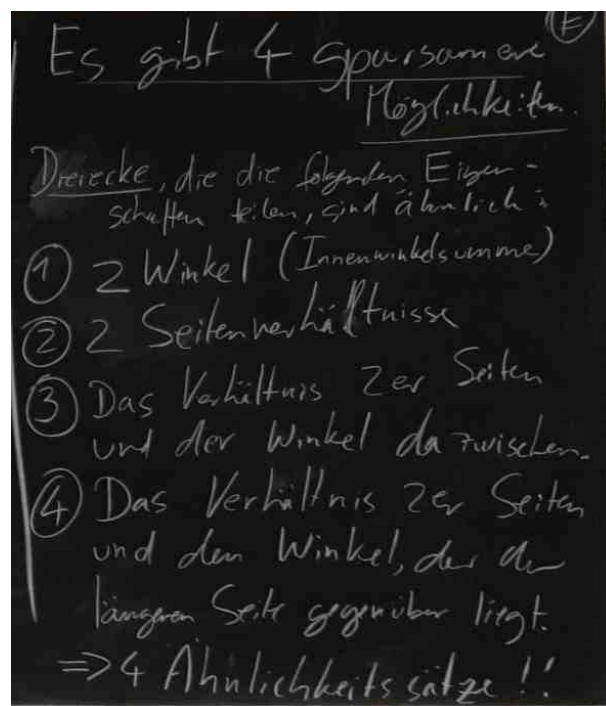 E
Es gibt 4 sparsamere
Möglichkeiten.
Dreiecke, die die folgenden Eigen-
schaften teilen, sind ähnlich:
① 2 Winkel (Innenwinkelsumme)
② 2 Seitenverhältnisse
③ Das Verhältnis 2er Seiten
und der Winkel dazwischen.
④ Das Verhältnis 2er Seiten
und den Winkel, der der
längeren Seite gegenüber liegt.
=> 4 Ähnlichkeitssätze!!